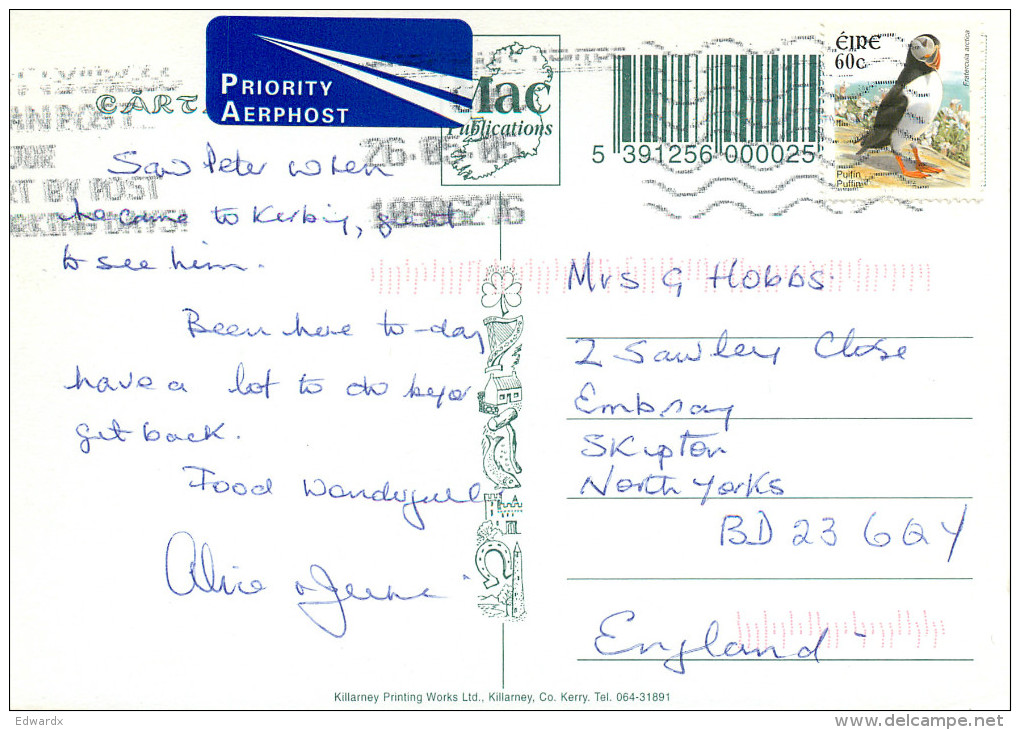 PRIORITY
AERPHOST
CÁRT
Mac
Publications
5 391256 000025
ÉIRE
60c
Fratercula arctica
Puifín
Puffin
26-05-05
RT BY POST
Saw Peter when
he came to Kerbing, great
to see him.
Been here to-day
have a lot to do befor
get back.
Food Wonderfull
Alice &
Mrs G Hobbs.
2 Sawley Close
Embsay
Skipton
North Yorks
BD 23 6QY
England
Killarney Printing Works Ltd., Killarney, Co. Kerry. Tel. 064-31891
Edwardx
www.delcampe.net